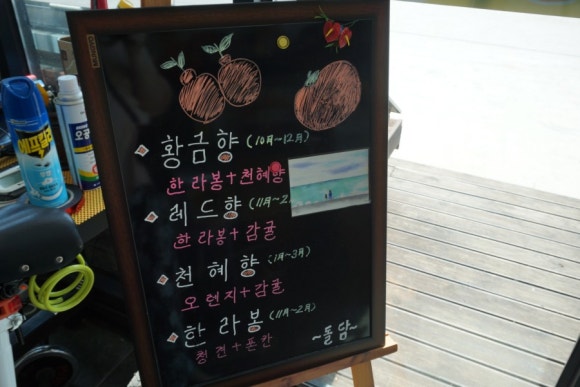 황금향 (10月~12月)
한라봉+천혜향
레드향 (11月~2
한라봉+감귤
천혜향 (1月~3月)
오렌지+감귤
한라봉 (11月~2月)
청견+폰칸
~돌담~